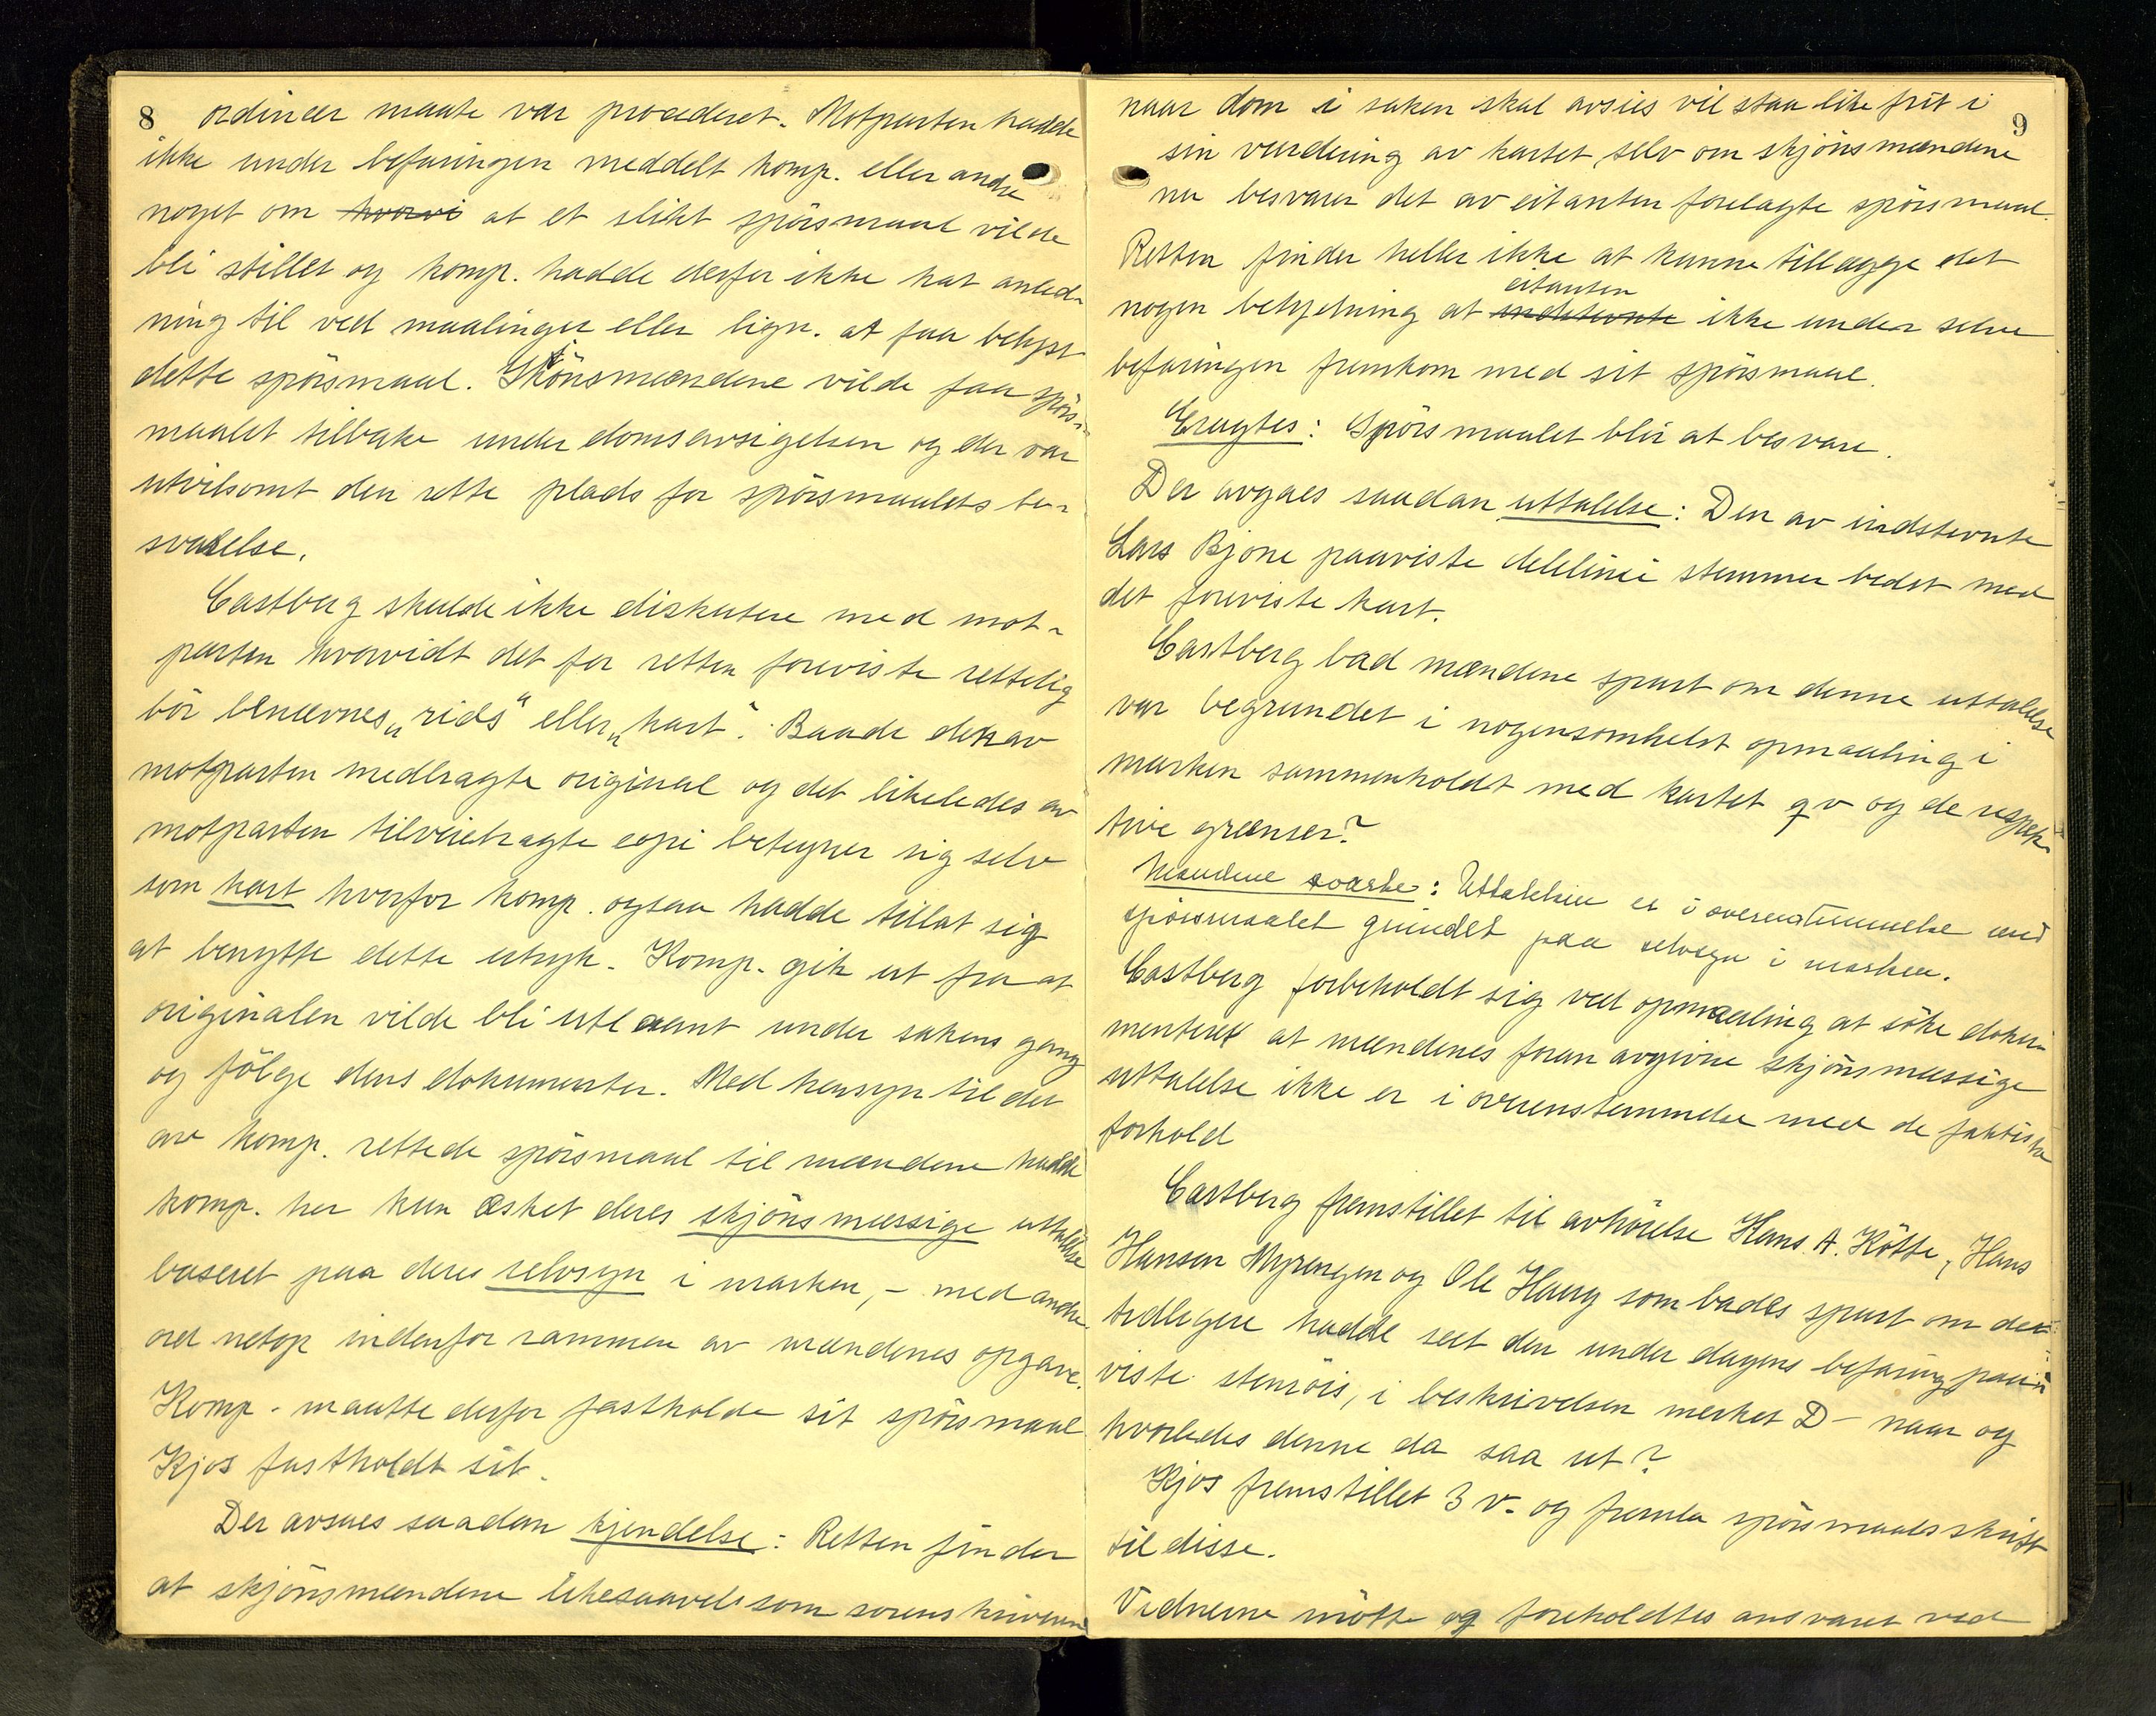 8
ordinær maate var procederet. Motparten hadde
ikke under befaringen meddelt komp. eller andre
noget om hvorvi at et slikt spörsmaal vilde
bli stillet og komp. hadde derfor ikke hat anled-
ning til ved maalinger eller lign. at faa belyst
dette spörsmaal. Skjönsmændene vilde faa spörs-
maalet tilbake under domsavsigelsen og der var
utvilsomt den rette plads for spörsmaalets be-
svarelse.
Castberg skulde ikke diskutere med mot-
parten hvorvidt det for retten foreviste rettelig
bör benævnes "rids" eller "kart". Baade den av
motparten medbragte original og det likeledes av
motparten tilveiebragte copi betegner sig selv
som kart hvorfor komp. ogsaa hadde tillat sig
at benytte dette uttryk. Komp. gik ut fra at
originalen vilde bli utlaant under sakens gang
og fölge dens dokumenter. Med hensyn til det
av komp. rettede spörsmaal til mændene hadde
komp. her kun æsket deres skjönsmæssige uttalelse
baseret paa deres selvsyn i marken, - med andre
ord netop indenfor rammen av mændenes opgave.
Komp. maatte derfor fastholde sit spörsmaal
Kjos fastholdt sit.
Der avsaes saadan kjendelse: Retten finder
at skjönsmændene likesaavel som sorenskriveren
9
naar dom i saken skal avsies vil staa like frit i
sin vurdering av kartet selv om skjönsmændene
nu besvarer det av citanten forelagte spörsmaal.
Retten finder heller ikke at kunne tillægge det
citanten
nogen betydning at indstevnte ikke under selve
befaringen fremkom med sit spörsmaal.
Eragtes: Spörsmaalet blir at besvare.
Der avgaes saadan uttalelse: Den av indstevnte
Lars Bjone paaviste delelinie stemmer bedst med
det foreviste kart.
Castberg bad mændene spurt om denne uttalelse
var begrundet i nogensomhelst opmaaling i
marken sammenholdt med kartet qv og de respek-
tive grænser?
Mændene svarte: Uttalelsen er i overensstemmelse med
spörsmaalet grundet paa selvsyn i marken.
Castberg forbeholdt sig ved opmaaling at söke doku-
menteret at mændenes foran avgivne skjönsmæssige
uttalelse ikke er i overensstemmelse med de faktiske
forhold
Castberg fremstillet til avhörelse Hans A. Kötte, Hans
Hansen Myrengen og Ole Haug som bades spurt om de
tidligere hadde seet den under dagens befaring paa-
viste stenröis, i beskrivelsen merket D - naar og
hvorledes denne da saa ut?
Kjos fremstillet 3 v. og fremla spörsmaalsskrift
til disse.
Vidnerne mötte og foreholdtes ansvaret ved